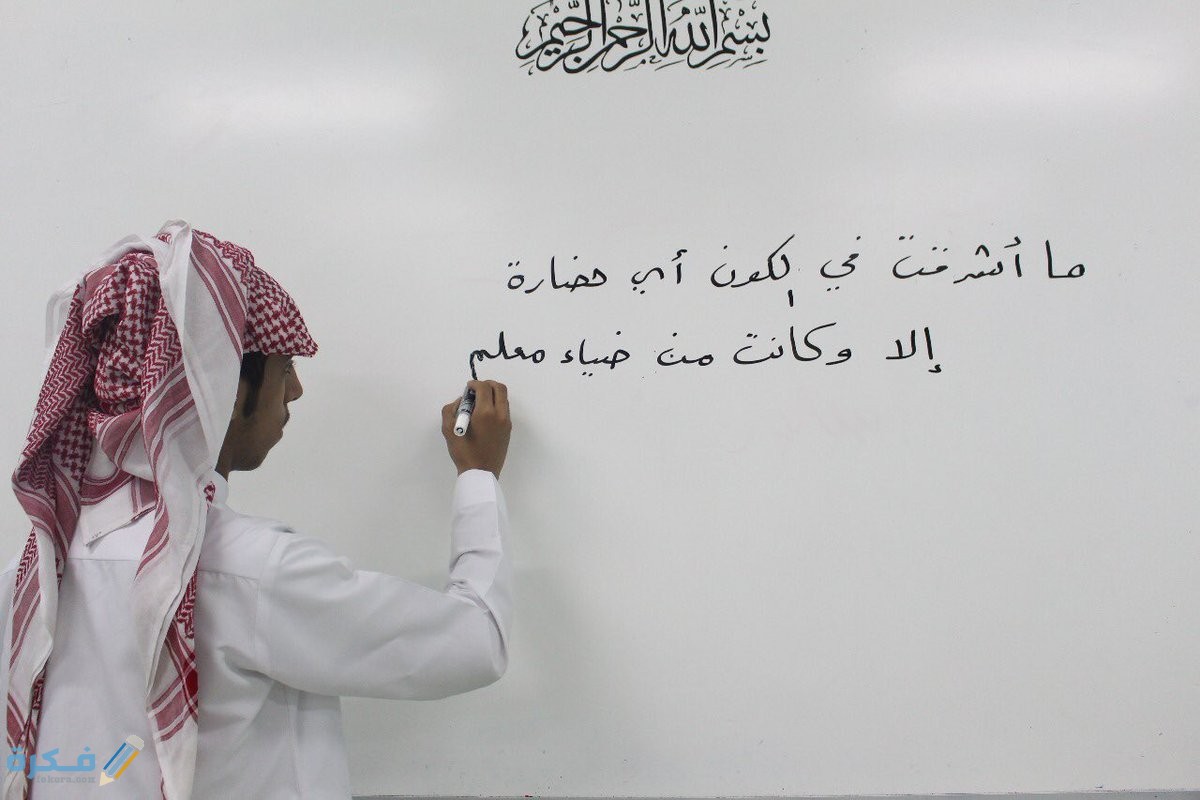 بسم الله الرحمن الرحيم
ما أشرقت في الكون أي حضارة
إلا وكانت من ضياء معلم
فكرة
fekera.com